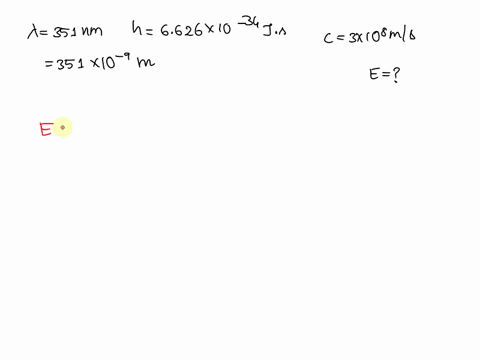 λ = 351 nm h = 6.626 × 10⁻³⁴ J.s c = 3×10⁸ m/s
= 351 × 10⁻⁹ m
E = ?
E